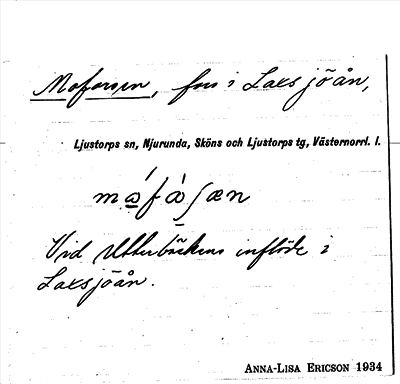 Moforsen, fors i Laxsjöån,
Ljustorps sn, Njurunda, Sköns och Ljustorps tg, Västernorrl. l.
Vid Utterbäckens inflöde i
Laxsjöån.
ANNA-LISA ERICSON 1934